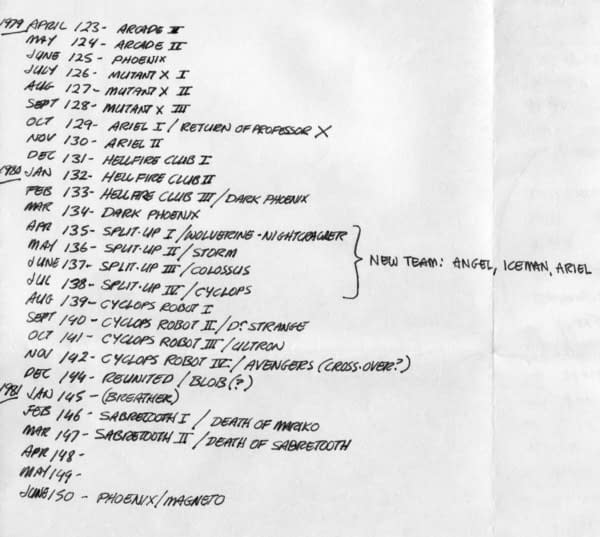 1979 APRIL 123 - ARCADE I
MAY 124 - ARCADE II
JUNE 125 - PHOENIX
JULY 126 - MUTANT X I
AUG 127 - MUTANT X II
SEPT 128 - MUTANT X III
OCT 129 - ARIEL I / RETURN OF PROFESSOR X
NOV 130 - ARIEL II
DEC 131 - HELLFIRE CLUB I
1980 JAN 132 - HELLFIRE CLUB II
FEB 133 - HELLFIRE CLUB III / DARK PHOENIX
MAR 134 - DARK PHOENIX
APR 135 - SPLIT-UP I / WOLVERINE - NIGHTCRAWLER
MAY 136 - SPLIT-UP II / STORM
NEW TEAM: ANGEL, ICEMAN, ARIEL
JUNE 137 - SPLIT-UP III / COLOSSUS
JUL 138 - SPLIT-UP IV / CYCLOPS
AUG 139 - CYCLOPS ROBOT I
SEPT 140 - CYCLOPS ROBOT II / DR STRANGE
OCT 141 - CYCLOPS ROBOT III / ULTRON
NOV 142 - CYCLOPS ROBOT IV / AVENGERS (CROSS-OVER?)
DEC 144 - REUNITED / BLOB (?)
1981 JAN 145 - (BREATHER)
FEB 146 - SABRETOOTH I / DEATH OF MARIKO
MAR 147 - SABRETOOTH II / DEATH OF SABRETOOTH
APR 148 -
MAY 149 -
JUNE 150 - PHOENIX / MAGNETO